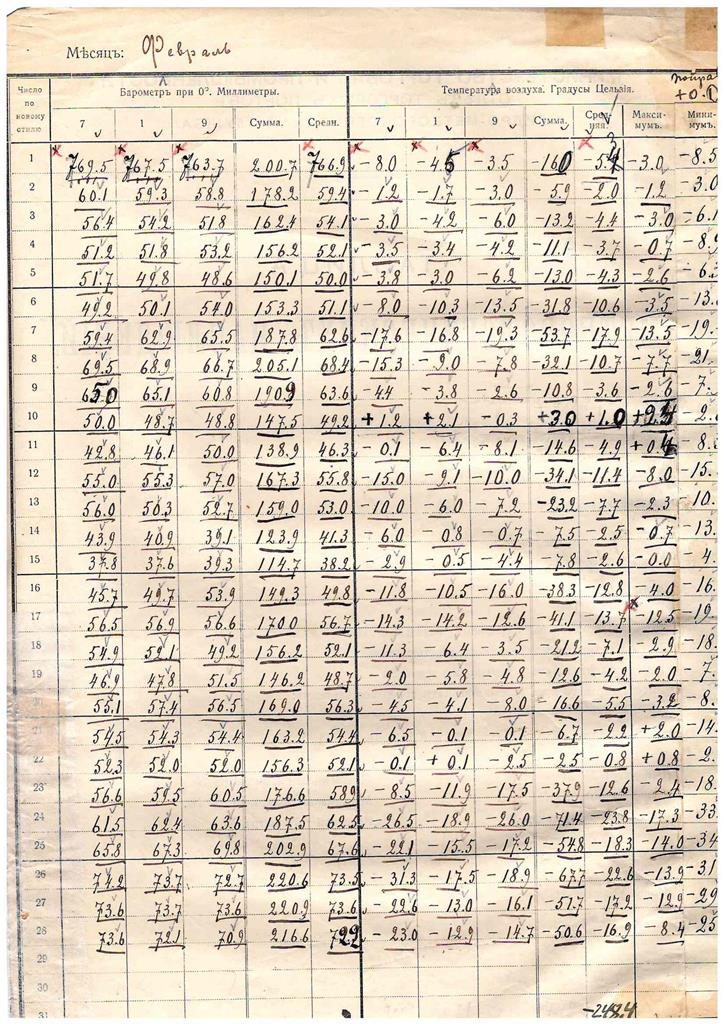 Мѣсяцъ: Февраль
Число по новому стилю
Барометръ при 0°. Миллиметры.
Температура воздуха. Градусы Цельзія.
+0.0
7 1 9 Сумма. Средн. 7 1 9 Сумма. Сред-няя. Макси-мумъ. Мини-мумъ.
1 769.5 767.5 763.7 200.7 766.9 -8.0 -4.5 -3.5 -16.0 -5.3 -3.0 -8.5
2 60.1 59.3 58.8 178.2 59.4 -1.2 -1.7 -3.0 -5.9 -2.0 -1.2 -3.0
3 56.4 54.2 51.8 162.4 54.1 -3.0 -4.2 -6.0 -13.2 -4.4 -3.0 -6.1
4 51.2 51.8 53.2 156.2 52.1 -3.5 -3.4 -4.2 -11.1 -3.7 -0.7 -8.9
5 51.7 49.8 48.6 150.1 50.0 -3.8 -3.0 -6.2 -13.0 -4.3 -2.6 -6.
6 49.2 50.1 54.0 153.3 51.1 -8.0 -10.3 -13.5 -31.8 -10.6 -3.5 -13.
7 59.4 62.9 65.5 187.8 62.6 -17.6 -16.8 -19.3 -53.7 -17.9 -13.5 -19.
8 69.5 68.9 66.7 205.1 68.4 -15.3 -9.0 -7.8 -32.1 -10.7 -7.7 -21.
9 65.0 65.1 60.8 190.9 63.6 -4.4 -3.8 -2.6 -10.8 -3.6 -2.6 -7.
10 50.0 48.7 48.8 147.5 49.2 +1.2 +2.1 -0.3 +3.0 +1.0 -2.
11 42.8 46.1 50.0 138.9 46.3 -0.1 -6.4 -8.1 -14.6 -4.9 +0.4 -8.
12 55.0 55.3 57.0 167.3 55.8 -15.0 -9.1 -10.0 -34.1 -11.4 -8.0 -15.
13 56.0 50.3 52.7 159.0 53.0 -10.0 -6.0 -7.2 -23.2 -7.7 -2.3 -10.
14 43.9 40.9 39.1 123.9 41.3 -6.0 -0.8 -0.7 -7.5 -2.5 -0.7 -13.
15 37.8 37.6 39.3 114.7 38.2 -2.9 -0.5 -4.4 -7.8 -2.6 -0.0 -4.
16 45.7 49.7 53.9 149.3 49.8 -11.8 -10.5 -16.0 -38.3 -12.8 -4.0 -16.
17 56.5 56.9 56.6 170.0 56.7 -14.3 -14.2 -12.6 -41.1 -13.7 -12.5 -19.
18 54.9 52.1 49.2 156.2 52.1 -11.3 -6.4 -3.5 -21.2 -7.1 -2.9 -18.
19 46.9 47.8 51.5 146.2 48.7 -2.0 -5.8 -4.8 -12.6 -4.2 -2.0 -7.
20 55.1 57.4 56.5 169.0 56.3 -4.5 -4.1 -8.0 -16.6 -5.5 -3.2 -8.
21 54.5 54.3 54.4 163.2 54.4 -6.5 -0.1 -0.1 -6.7 -2.2 +2.0 -14.
22 52.3 52.0 52.0 156.3 52.1 -0.1 +0.1 -2.5 -2.5 -0.8 +0.8 -2.
23 56.6 59.5 60.5 176.6 58.9 -8.5 -11.9 -17.5 -37.9 -12.6 -2.4 -18.
24 61.5 62.4 63.6 187.5 62.5 -26.5 -18.9 -26.0 -71.4 -23.8 -17.3 -33.
25 65.8 67.3 69.8 202.9 67.6 -22.1 -15.5 -17.2 -54.8 -18.3 -14.0 -34
26 74.2 73.7 72.7 220.6 73.5 -31.3 -17.5 -18.9 -67.7 -22.6 -13.9 -31
27 73.6 73.7 73.6 220.9 73.6 -22.6 -13.0 -16.1 -51.7 -17.2 -12.9 -29
28 73.6 72.1 70.9 216.6 72.2 -23.0 -12.9 -14.7 -50.6 -16.9 -8.4 -25
29
30
31 -248.4